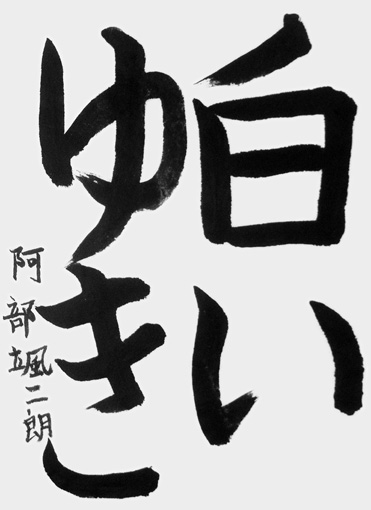 白い
ゆき
阿部颯二朗